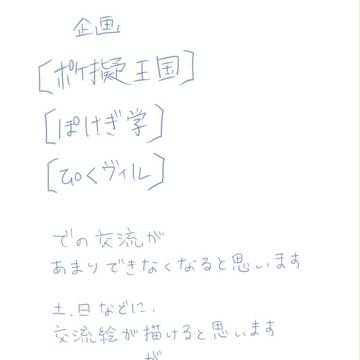 企画
[ポケ擬王国]
[ぽけぎ学]
[ぴくヴィル]
での交流が
あまりできなくなると思います
土、日などに、
交流絵が描けると思います
が